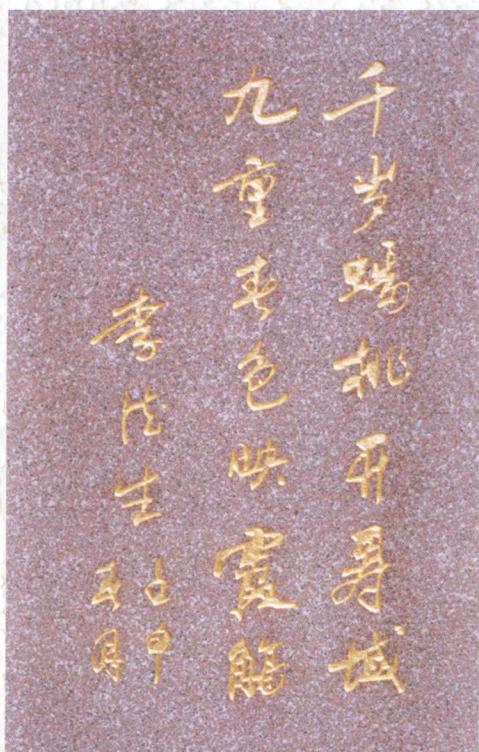 千岁蟠桃开寿域
九重春色映霞觞
李德生
壬申
月